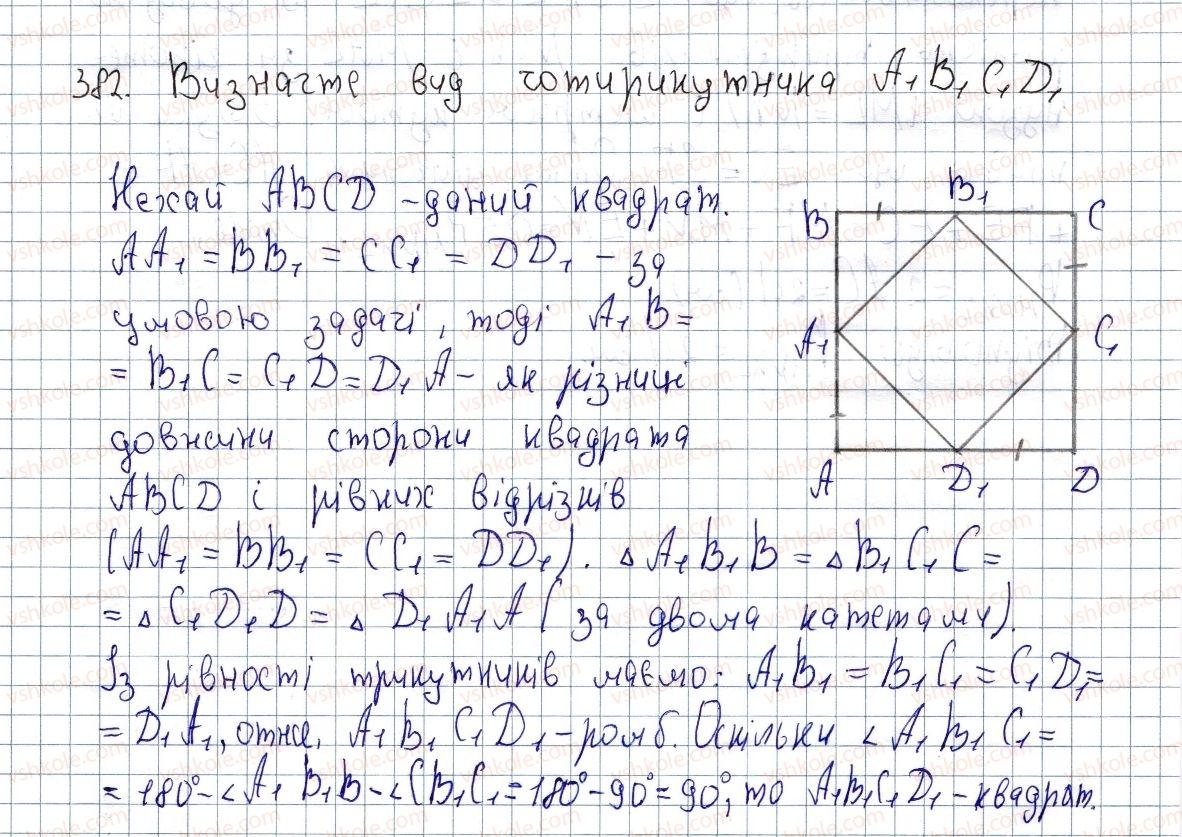 382. Визначте вид чотирикутника A₁B₁C₁D₁
Нехай ABCD - даний квадрат.
AA₁ = BB₁ = CC₁ = DD₁ - за
умовою задачі, тоді A₁B =
= B₁C = C₁D = D₁A - як різниці
довжини сторони квадрата
ABCD і рівних відрізків
(AA₁ = BB₁ = CC₁ = DD₁). △A₁B₁B = △B₁C₁C =
= △C₁D₁D = △D₁A₁A (за двома катетами).
Із рівності трикутників маємо: A₁B₁ = B₁C₁ = C₁D₁ =
= D₁A₁, отже, A₁B₁C₁D₁ - ромб. Оскільки ∠A₁B₁C₁ =
= 180° - ∠A₁B₁B - ∠CB₁C₁ = 180° - 90° = 90°, то A₁B₁C₁D₁ - квадрат.
B B₁ C
A₁ C₁
A D₁ D
vshkole.com